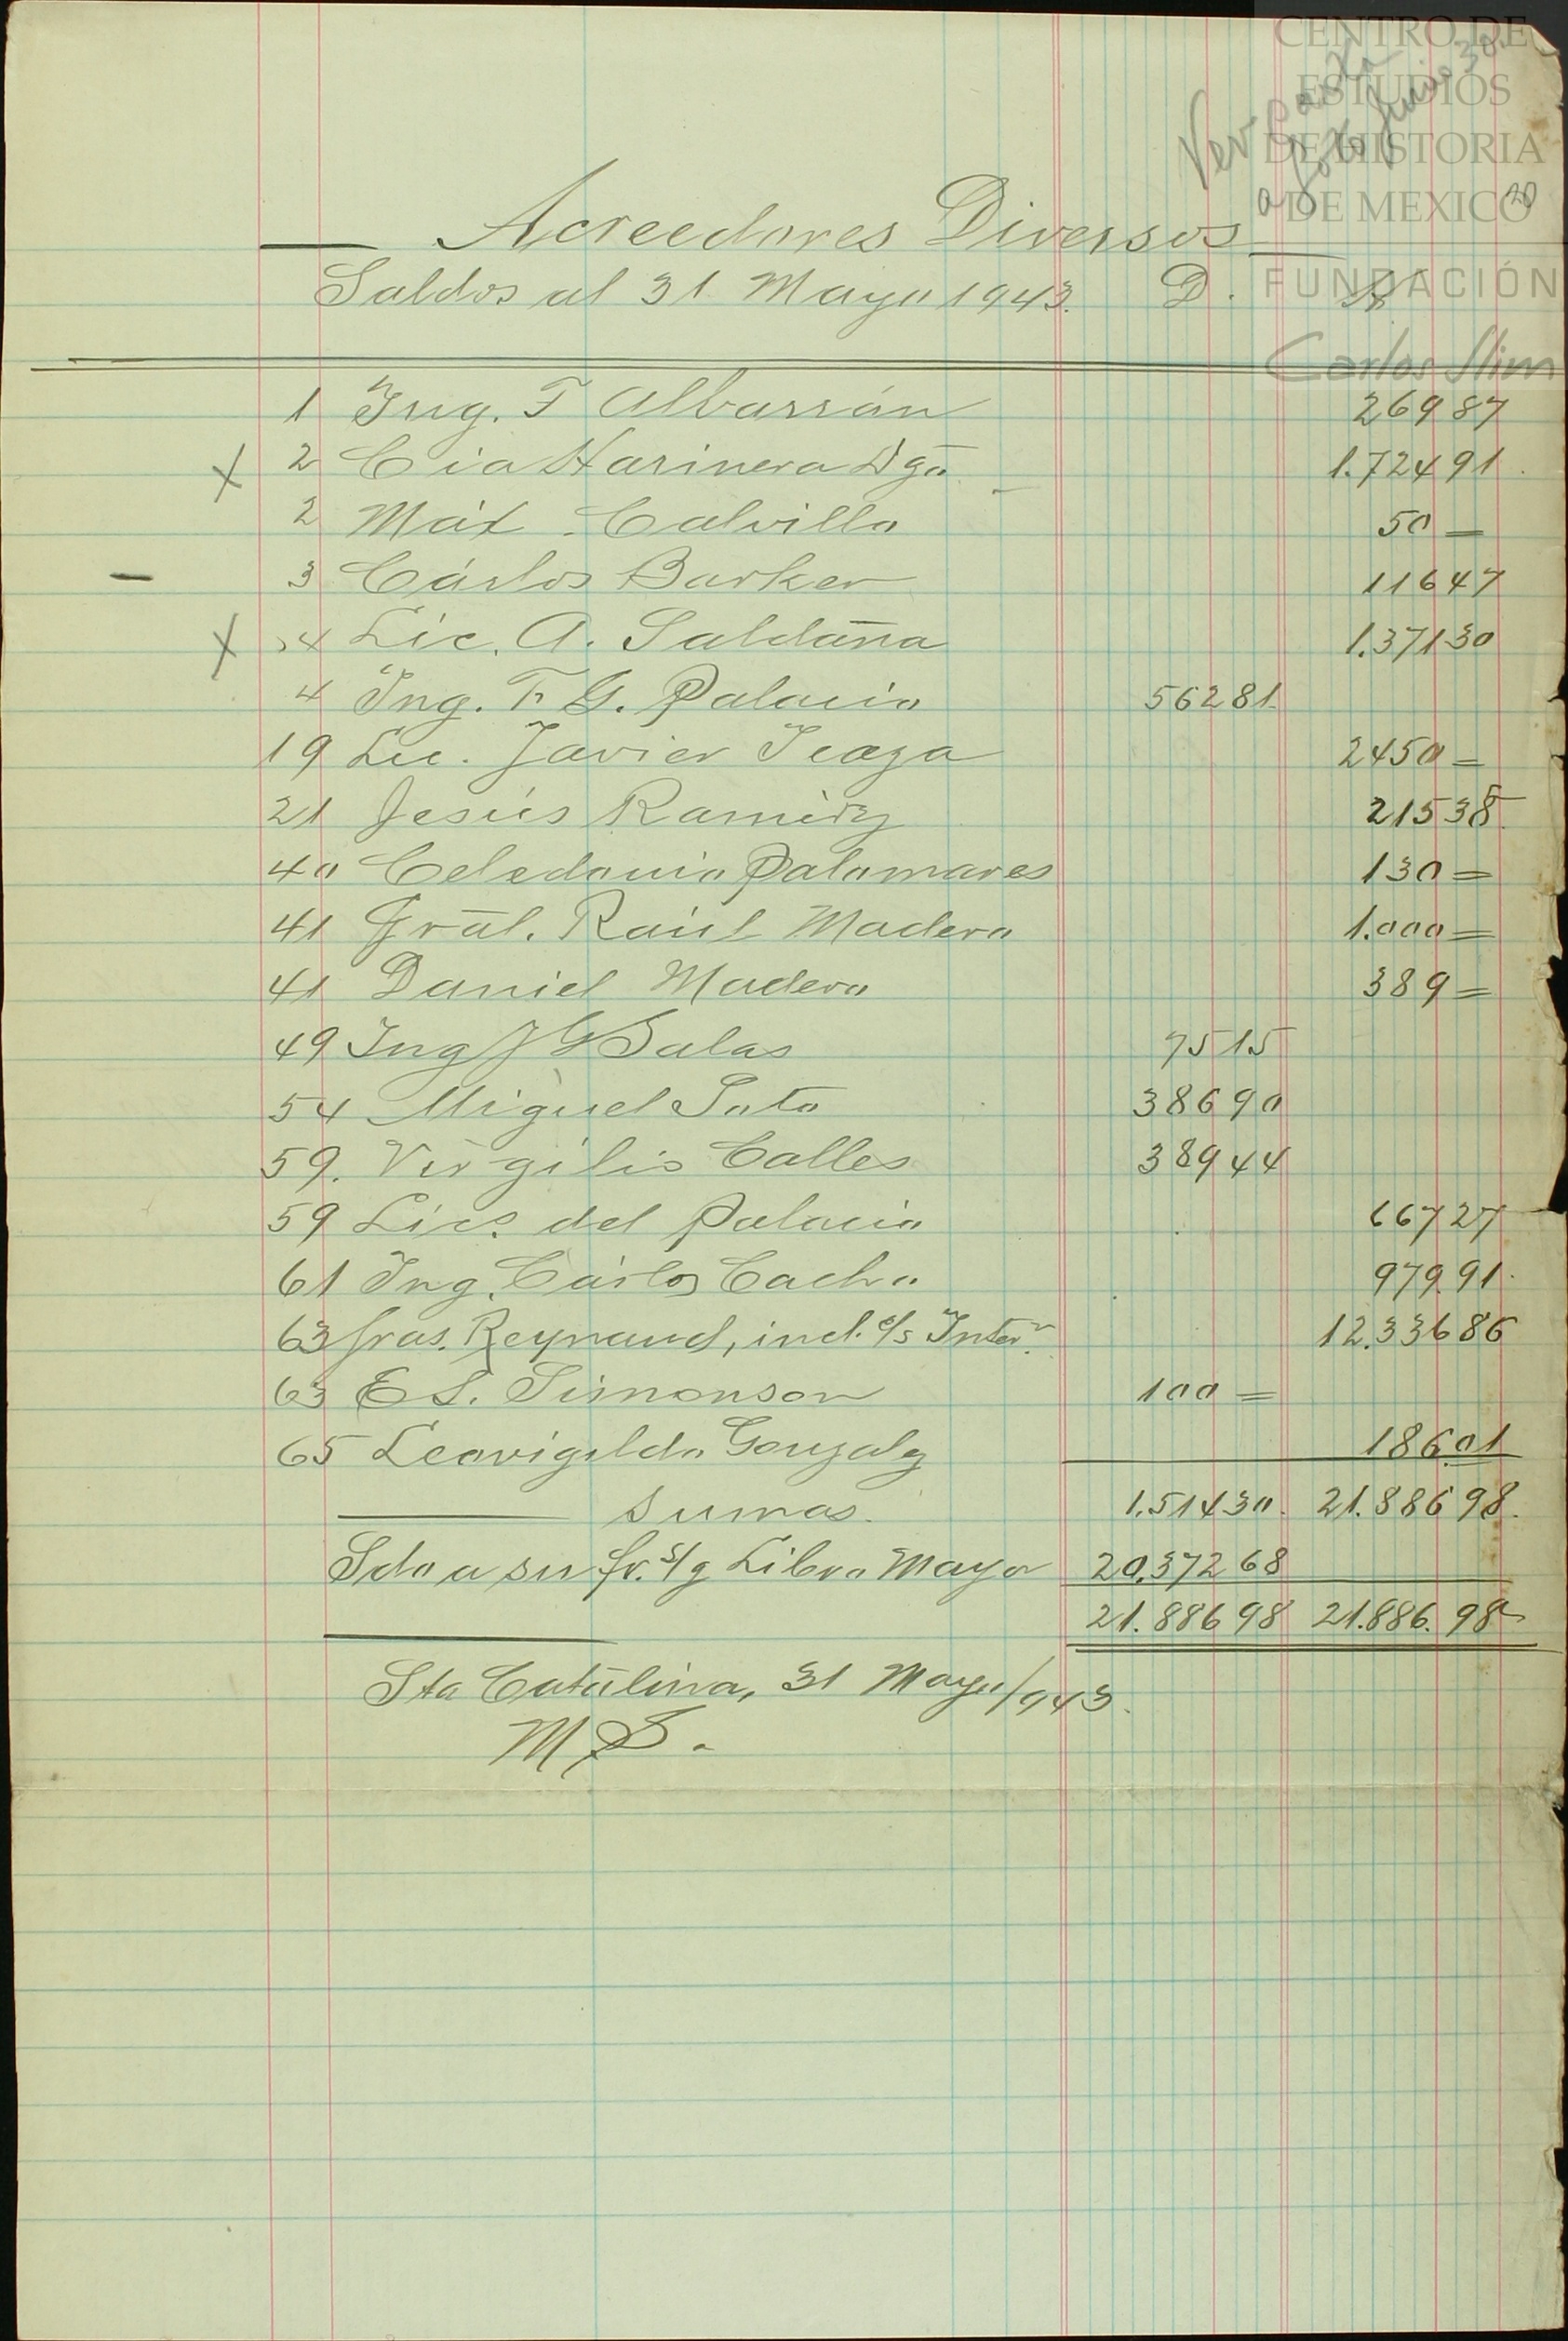 CENTRO DE
ESTUDIOS
DE HISTORIA
DE MEXICO
FUNDACIÓN
Carlos Slim
Ver carta
a Soto Junio 30.
20
Acreedores Diversos
Saldos al 31 Mayo 1943. D. A
1 Ing. F Albarrán 269 87
X 2 Cia Harinera Dgo 1.724 91
2 Máx. Calvillo 50 —
— 3 Cárlos Barker 116 47
X 4 Lic. A. Saldaña 1.371 30
4 Ing. F. G. Palacio 562 81
19 Lic. Javier Icaza 2450 =
21 Jesús Ramírz 215 35
40 Celedonio Palomares 130 =
41 Gral. Raúl Madero 1.000 =
41 Daniel Madero 389 =
49 Ing J G Salas 75 15
54 Miguel Soto 386 90
59. Virgilio Calles 389 44
59 Lics. del Palacio 667 27
61 Ing. Cárlos Cacho 979.91
63 Sras. Reynaud, incl. c/s Inter. 12.336 86
63 E S. Simonson 100 =
65 Leovigildo Gonzalz 186.01
Sumas. 1.514 30. 21.886 98.
Sdo a su fr. s/g Libro Mayor 20.372 68
21.886 98 21.886. 98
Sta Catalina, 31 Mayo/943.
M S.